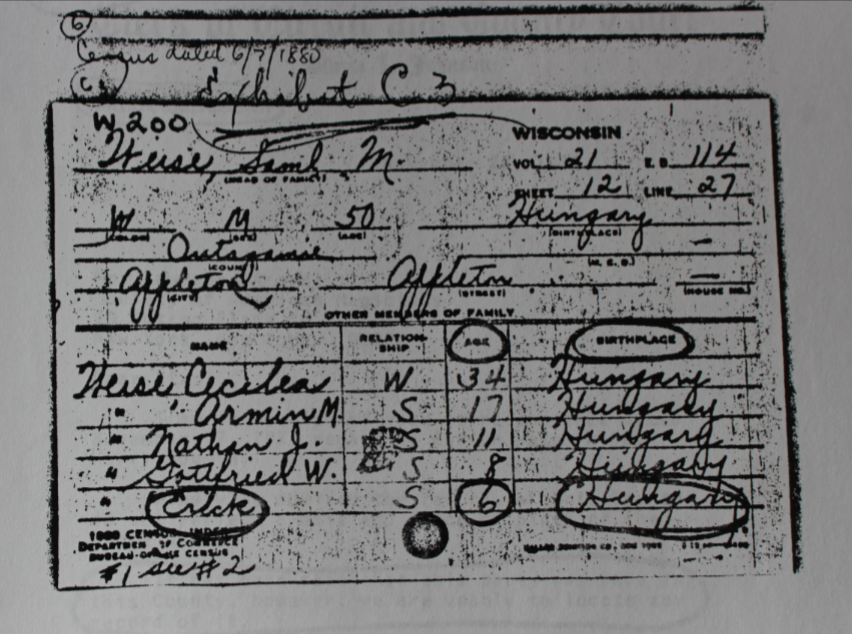 6
Census dated 6/7/1880
C Exhibit C 3
W 200
WISCONSIN
Weise, Saml. M.
VOL. 21 E. D. 114
(HEAD OF FAMILY)
SHEET 12 LINE 27
W M 50 Hungary
(COLOR) (SEX) (AGE) (BIRTHPLACE)
Outagamie —
(COUNTY) (M. C. D.)
Appleton Appleton —
(CITY) (STREET) (HOUSE NO.)
OTHER MEMBERS OF FAMILY
NAME RELATION- SHIP AGE BIRTHPLACE
Weise Cecilea W 34 Hungary
" Armin M. S 17 Hungary
" Nathan J. S 11 Hungary
" Gottfried W. S 8 Hungary
" Erick S 6 Hungary
1880 CENSUS INDEX
DEPARTMENT OF COMMERCE
BUREAU OF THE CENSUS
#1 see #2
this County, however, we are unable to locate any
record of it.